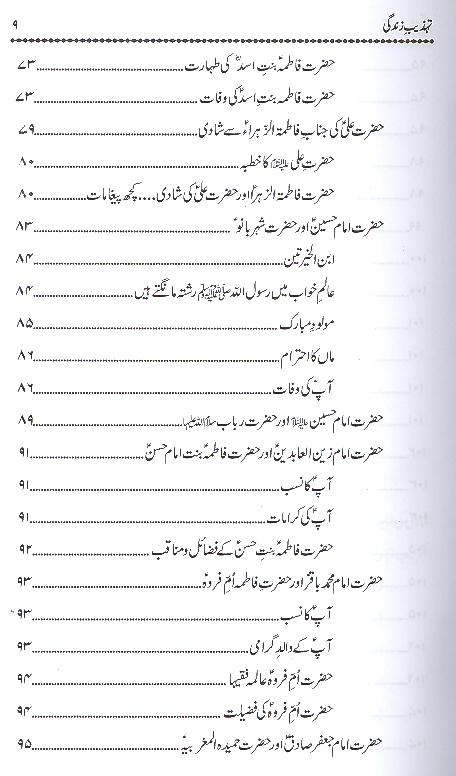 تہذیبِ زندگی ۹
حضرت فاطمہؑ بنتِ اسدؑ کی طہارت ۷۳
حضرت فاطمہ بنتِ اسدؑ کی وفات ۷۳
حضرت علیؑ کی جنابِ فاطمۃ الزہراءؑ سے شادی ۷۹
حضرتِ علی علیہ السلام کا خطبہ ۸۰
حضرت فاطمۃ الزہراؑ اور حضرت علیؑ کی شادی.... کچھ پیغامات ۸۰
حضرت امام حسینؑ اور حضرت شہر بانوؑ ۸۳
ابن الخیرتین ۸۴
عالمِ خواب میں رسول اللہ صلی اللہ علیہ وآلہ وسلم رشتہ مانگتے ہیں ۸۴
مولودِ مبارک ۸۵
ماں کا احترام ۸۶
آپؑ کی وفات ۸۶
حضرت امام حسین علیہ السلام اور حضرت رباب سلام اللہ علیہا ۸۹
حضرت امام زین العابدینؑ اور حضرت فاطمہؑ بنت امام حسنؑ ۹۱
آپؑ کا نسب ۹۱
آپؑ کی کرامات ۹۱
حضرت فاطمہؑ بنتِ حسنؑ کے فضائل و مناقب ۹۲
حضرت امام محمد باقرؑ اور حضرتِ فاطمہ اُمِ فروہؑ ۹۳
آپؑ کا نسب ۹۳
آپؑ کے والدِ گرامی ۹۳
حضرت اُمِ فروہؑ عالمہ فقیہا ۹۴
حضرت اُمِ فروہؑ کی فضیلت ۹۴
حضرت امام جعفر صادقؑ اور حضرت حمیدہ المغربیہؑ ۹۵